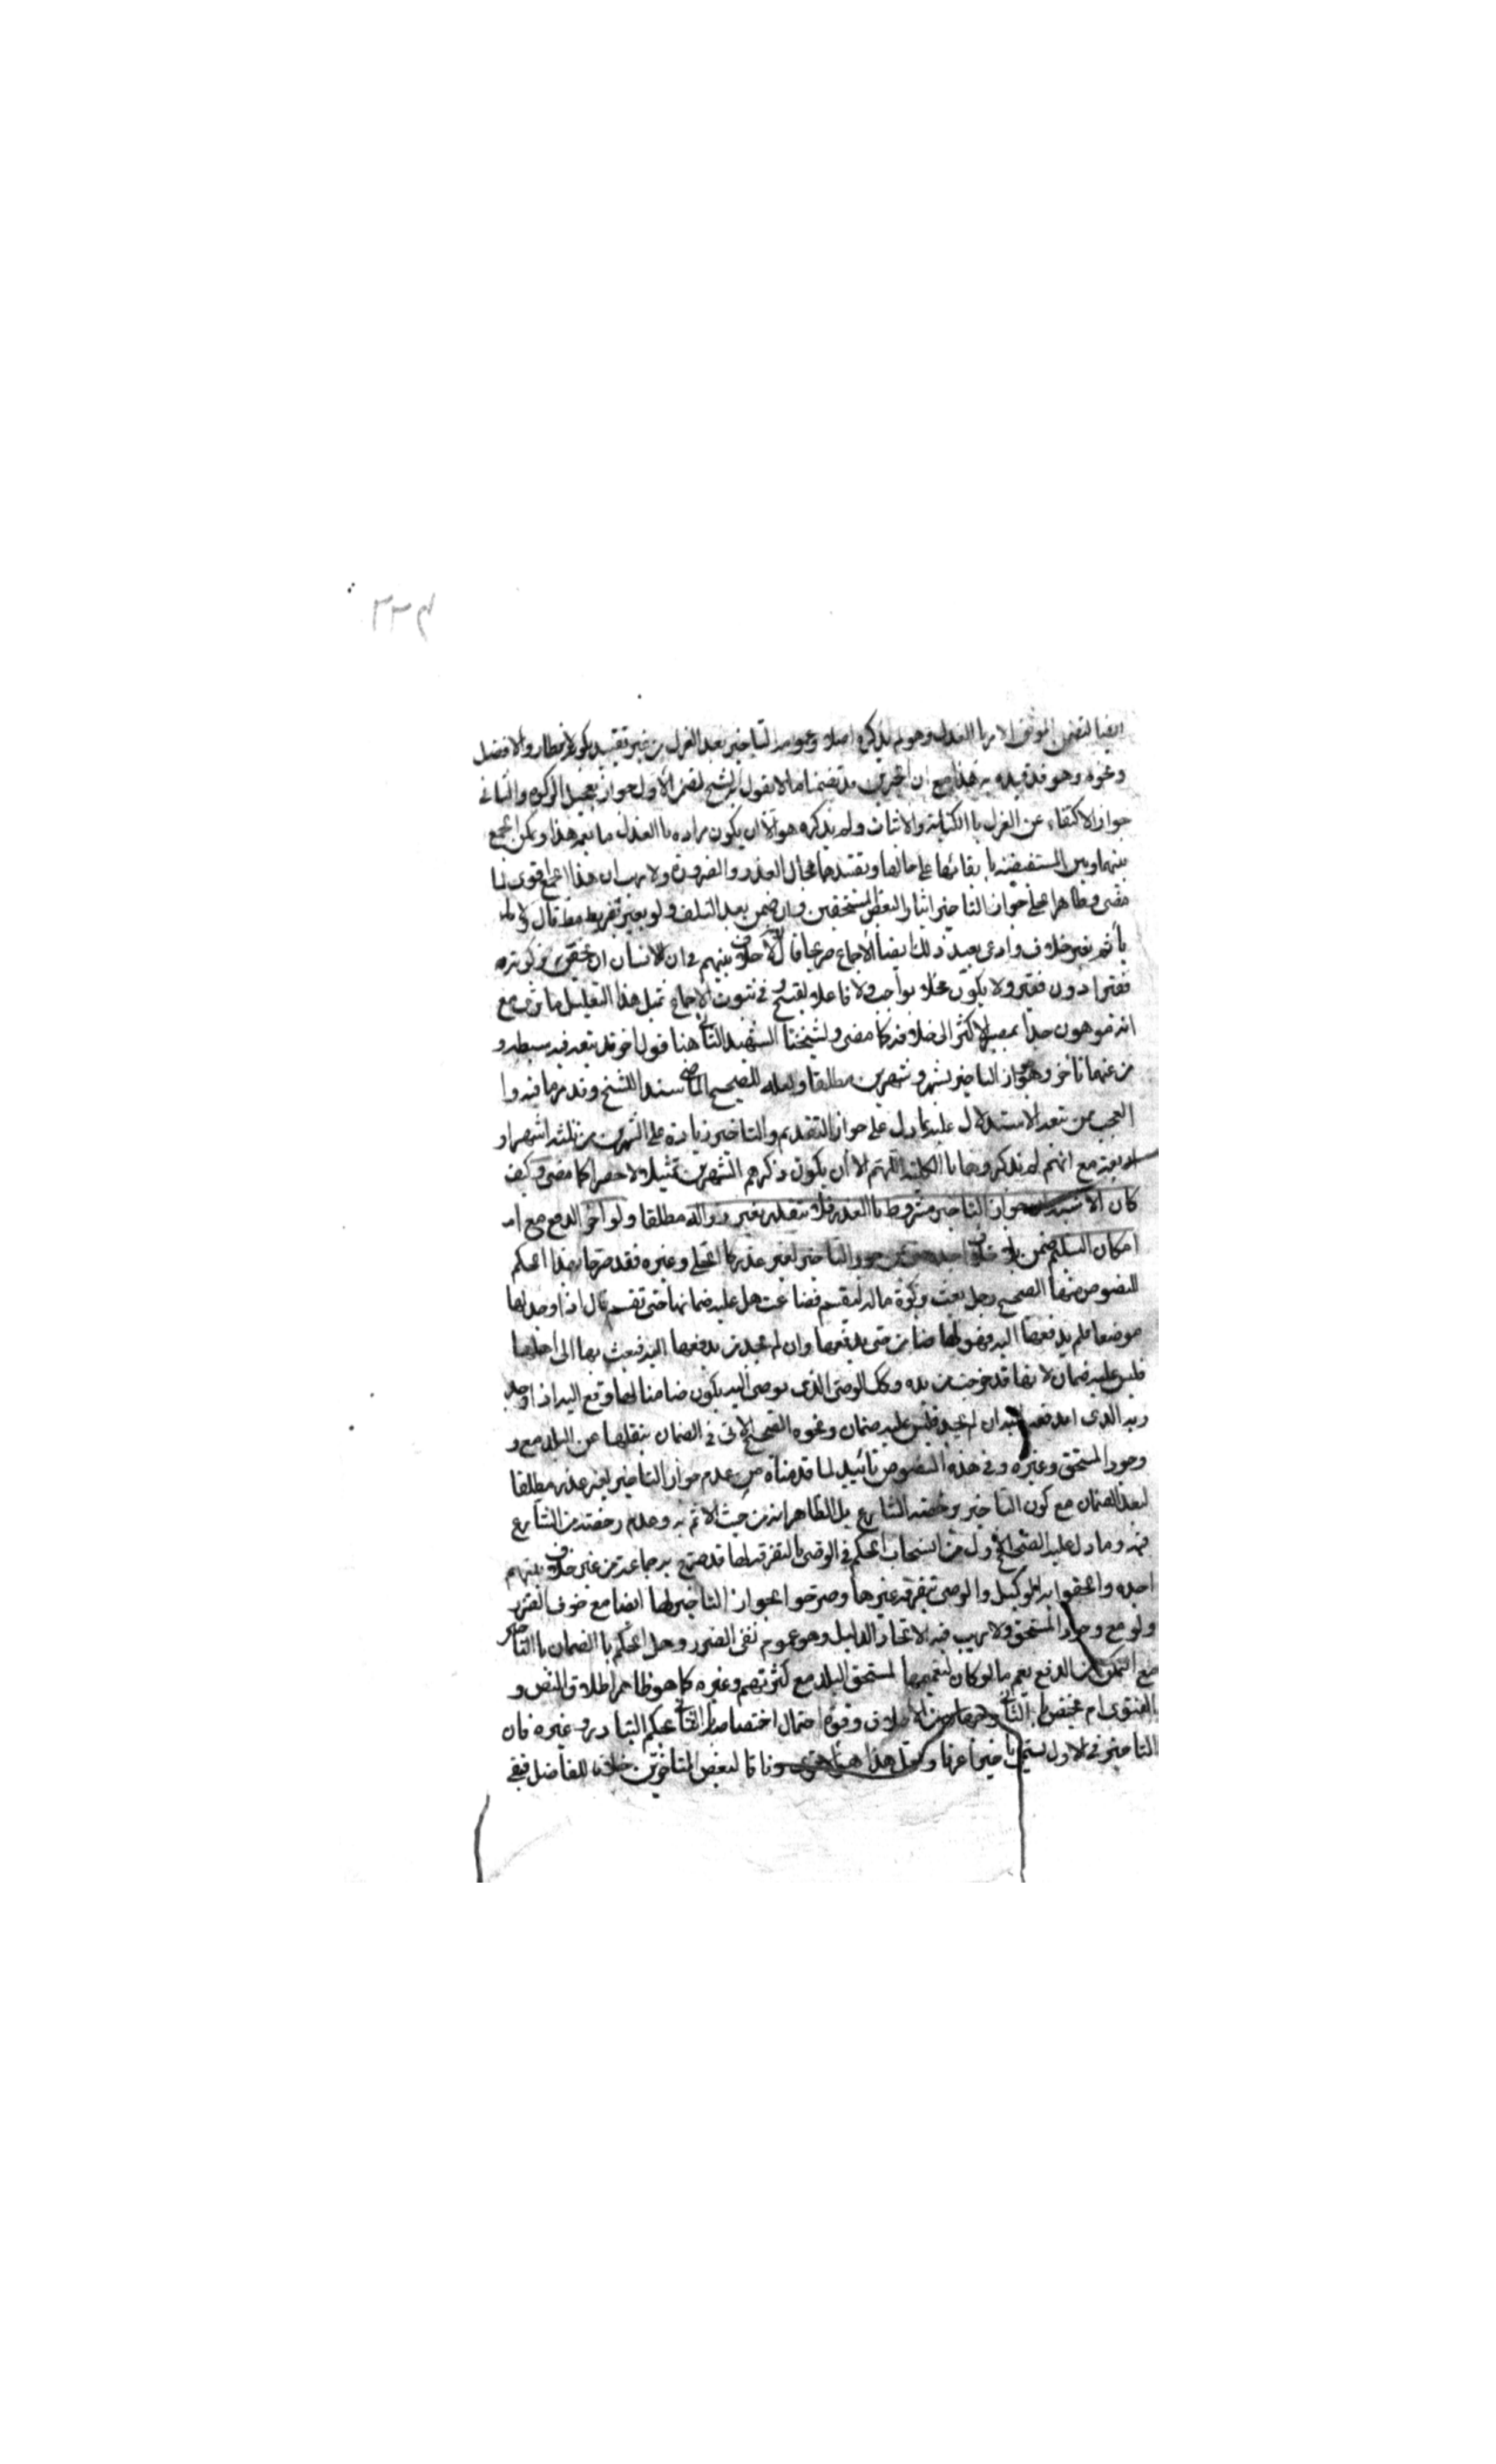 ٣٣۴
ايضا لتضمن الموثق الامر بالعزل وهو لم يذكره اصلا وعموم التاخير بعد العزل من غير تقييد بكونه لانتظار والافضل
ونحوه وهو قد قيده به هذا مع ان الخبرين قد تضمنا ما لا يقول به الشيخ لتضمن الاول جواز تعجيل الزكوة والثاني
جواز الاكتفاء عن العزل بالكتابة والاثبات ولم يذكره هو الا ان يكون مراده بالعزل ما يعمه هذا ويمكن الجمع
بينهما وبين المستفيضة بابقائها على حالها وتقييدهما بحال العذر والضرورة ولا ريب ان هذا الجمع اقوى لما
مضى وظاهر الحلي جواز التاخير ايثارا لبعض المستحقين وان ضمن بعد التلف ولو بغير تفريط فقال
ياثم بغير خلاف وادعى بعيد ذلك ايضا الاجماع صريحا قال لانه لا خلاف بينهم في ان للانسان ان يخص بزكوته
فقيرا دون فقير ولا يكون مخلا بواجب ولا فاعلا لقبيح وفي ثبوت الاجماع بمثل هذا التعليل ما ترى مع
انه موهون جدا بمصير الاكثر الى خلافه كما مضى ولشيخنا الشهيد الثاني هنا قول اخر قد تبعه فيه سبطه و
من عنهما تأخر وهو جواز التاخير بشهر وشهرين مطلقا ولعله للصحيح الماضي سندا للشيخ وقد مر ما فيه وا
العجب ممن تبعه الاستدلال عليه بما دل على جواز التقديم والتاخير زيادة على الشهرين من ثلثة اشهر او
اربعة مع انهم لم يذكروها بالكلية اللهم الا ان يكون ذكرهم الشهرين تمثيلا لا حصرا كما مضى وكيف
كان الاشبه ان جواز التاخير مشروط بالعذر فلا يتقدر بغير زواله مطلقا ولو اخر الدفع مع
امكان التسليم ضمن بلا خلاف اجده حتى ممن جوز التاخير لغير عذر كالحلي وغيره فقد صرحا بهذا الحكم
للنصوص منها الصحيح رجل بعث بزكوة ماله لتقسم فضاعت هل عليه ضمانها حتى تقسم قال اذا وجد لها
موضعا فلم يدفعها اليه فهو لها ضامن حتى يدفعها وان لم يجد من يدفعها اليه فبعث بها الى اهلها
فليس عليه ضمان لانها قد خرجت من يده وكك الوصي الذي يوصى اليه يكون ضامنا لما دفع اليه اذا وجد
ربه الذي امر بدفعه اليه فان لم يجد فليس عليه ضمان ونحوه الصحيح الاتي في الضمان بنقلها عن البلد مع و
وجود المستحق وغيره وفي هذه النصوص تأييد لما قدمناه من عدم جواز التاخير لغير عذر مطلقا
لبعد الضمان مع كون التاخير برخصة الشارع بل الظاهر انه من حيث الاثم به وعدم رخصة من الشارع
فيه وما دل عليه الصحيح الاول من انسحاب الحكم في الوصي بالتفرقة لها قد صرح به جماعة من غير خلاف بينهم
اجده والحقوا به الوكيل والوصي بتفرقة غيرها وصرحوا بجواز التاخير لها ايضا مع خوف الضرر
ولو مع وجود المستحق ولا ريب فيه لاتحاد الدليل وهو عموم نفي الضرر وهل الحكم بالضمان بالتاخير
مع التمكن من الدفع يعم ما لو كان لتعميمها لمستحق البلد مع كثرتهم وغيره كما هو ظاهر اطلاق النص و
الفتوى ام يختص بالثاني وجهان من الاطلاق وقوة احتمال اختصاصه بالثاني بحكم التبادر وغيره فان
التاخير في الاول ليس تاخيرا عرفا ولعل هذا هو الاقوى وفاقا لبعض المتاخرين خلافا للفاضل فبقي